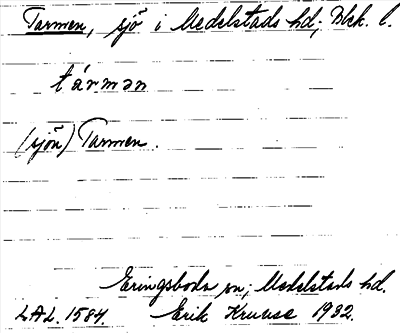 Tarmen, sjö i Medelstads hd; Blek. l.
tármən
(sjön) Tarmen.
Eringsboda sn; Medelstads hd.
LAL. 1584. Erik Kruuse 1932.